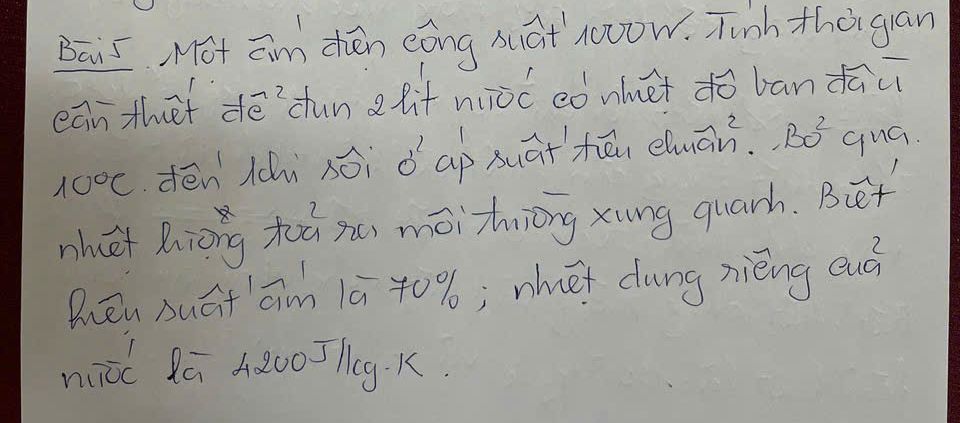 Bài 5. Một ấm điện công suất 1000W. Tính thời gian
cần thiết để đun 2 lít nước có nhiệt độ ban đầu
10°C. đến khi sôi ở áp suất tiêu chuẩn. Bỏ qua.
nhiệt lượng toả ra môi trường xung quanh. Biết
hiệu suất ấm là 70%; nhiệt dung riêng của
nước là 4200J/kg.K.